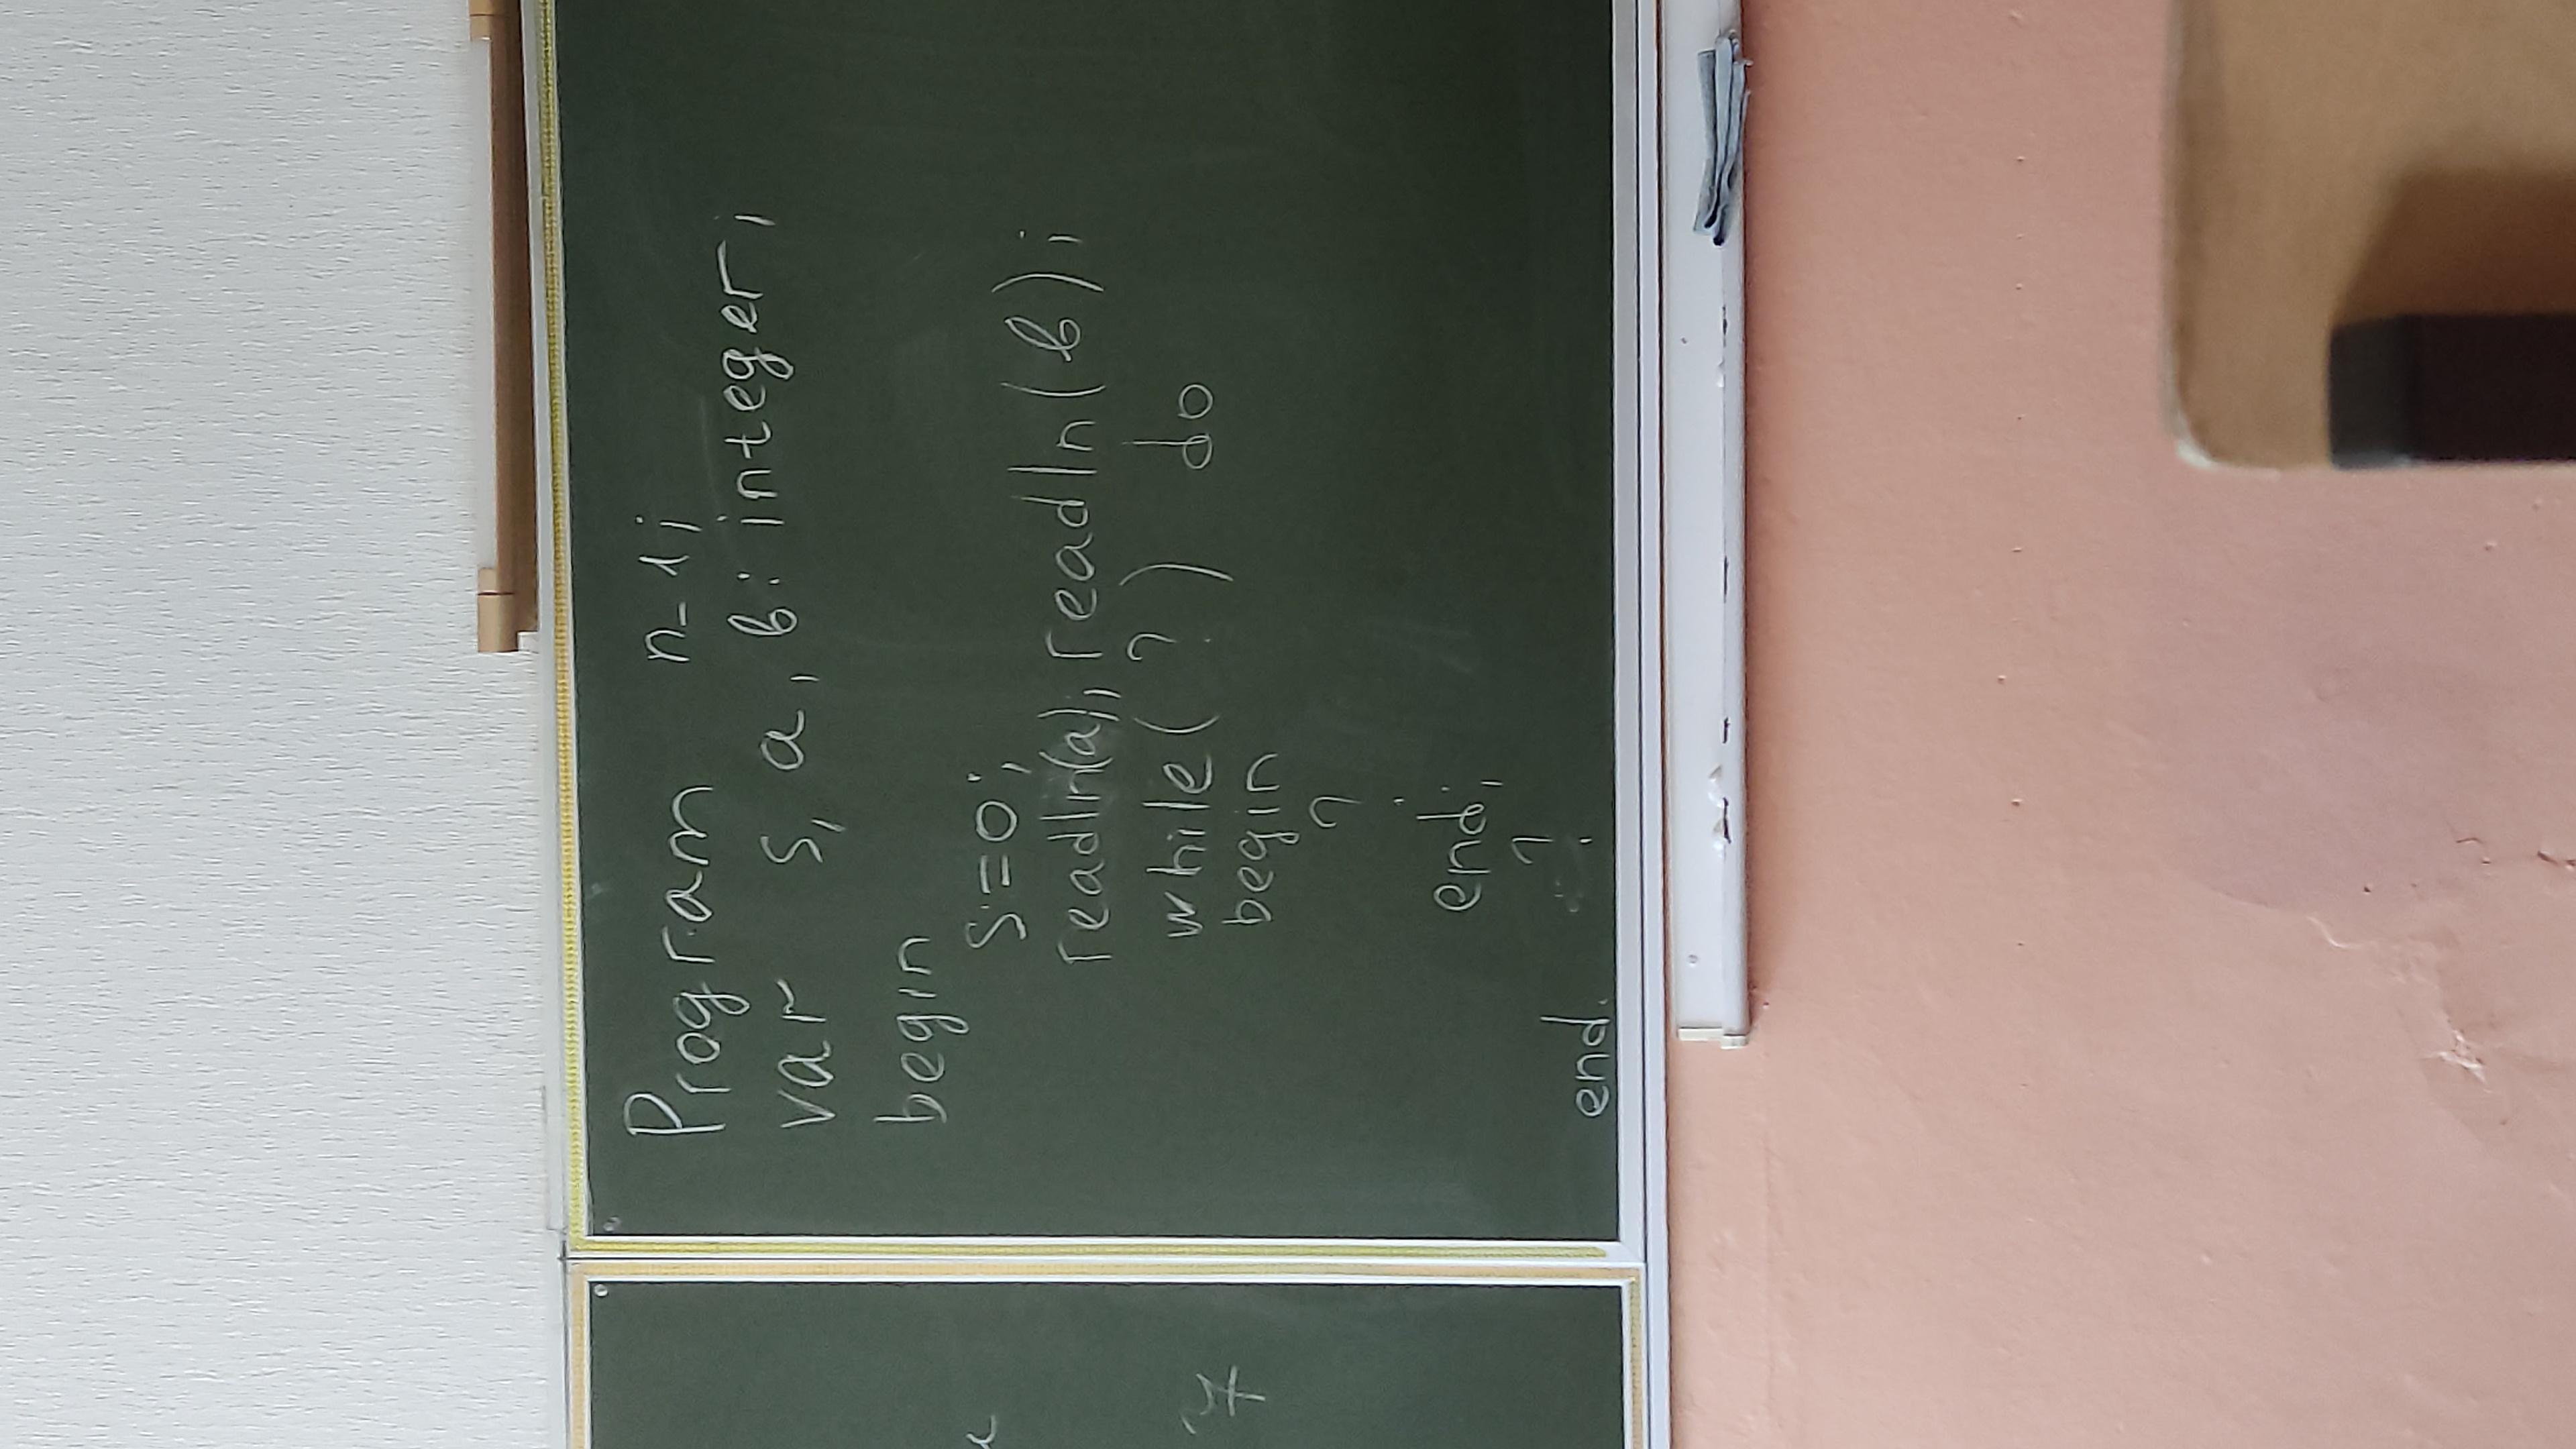 Program n-1;
var s, a, b: integer;
begin
s:=0;
readln(a); readln(b);
while (?) do
begin
?
end;
?
end.
7